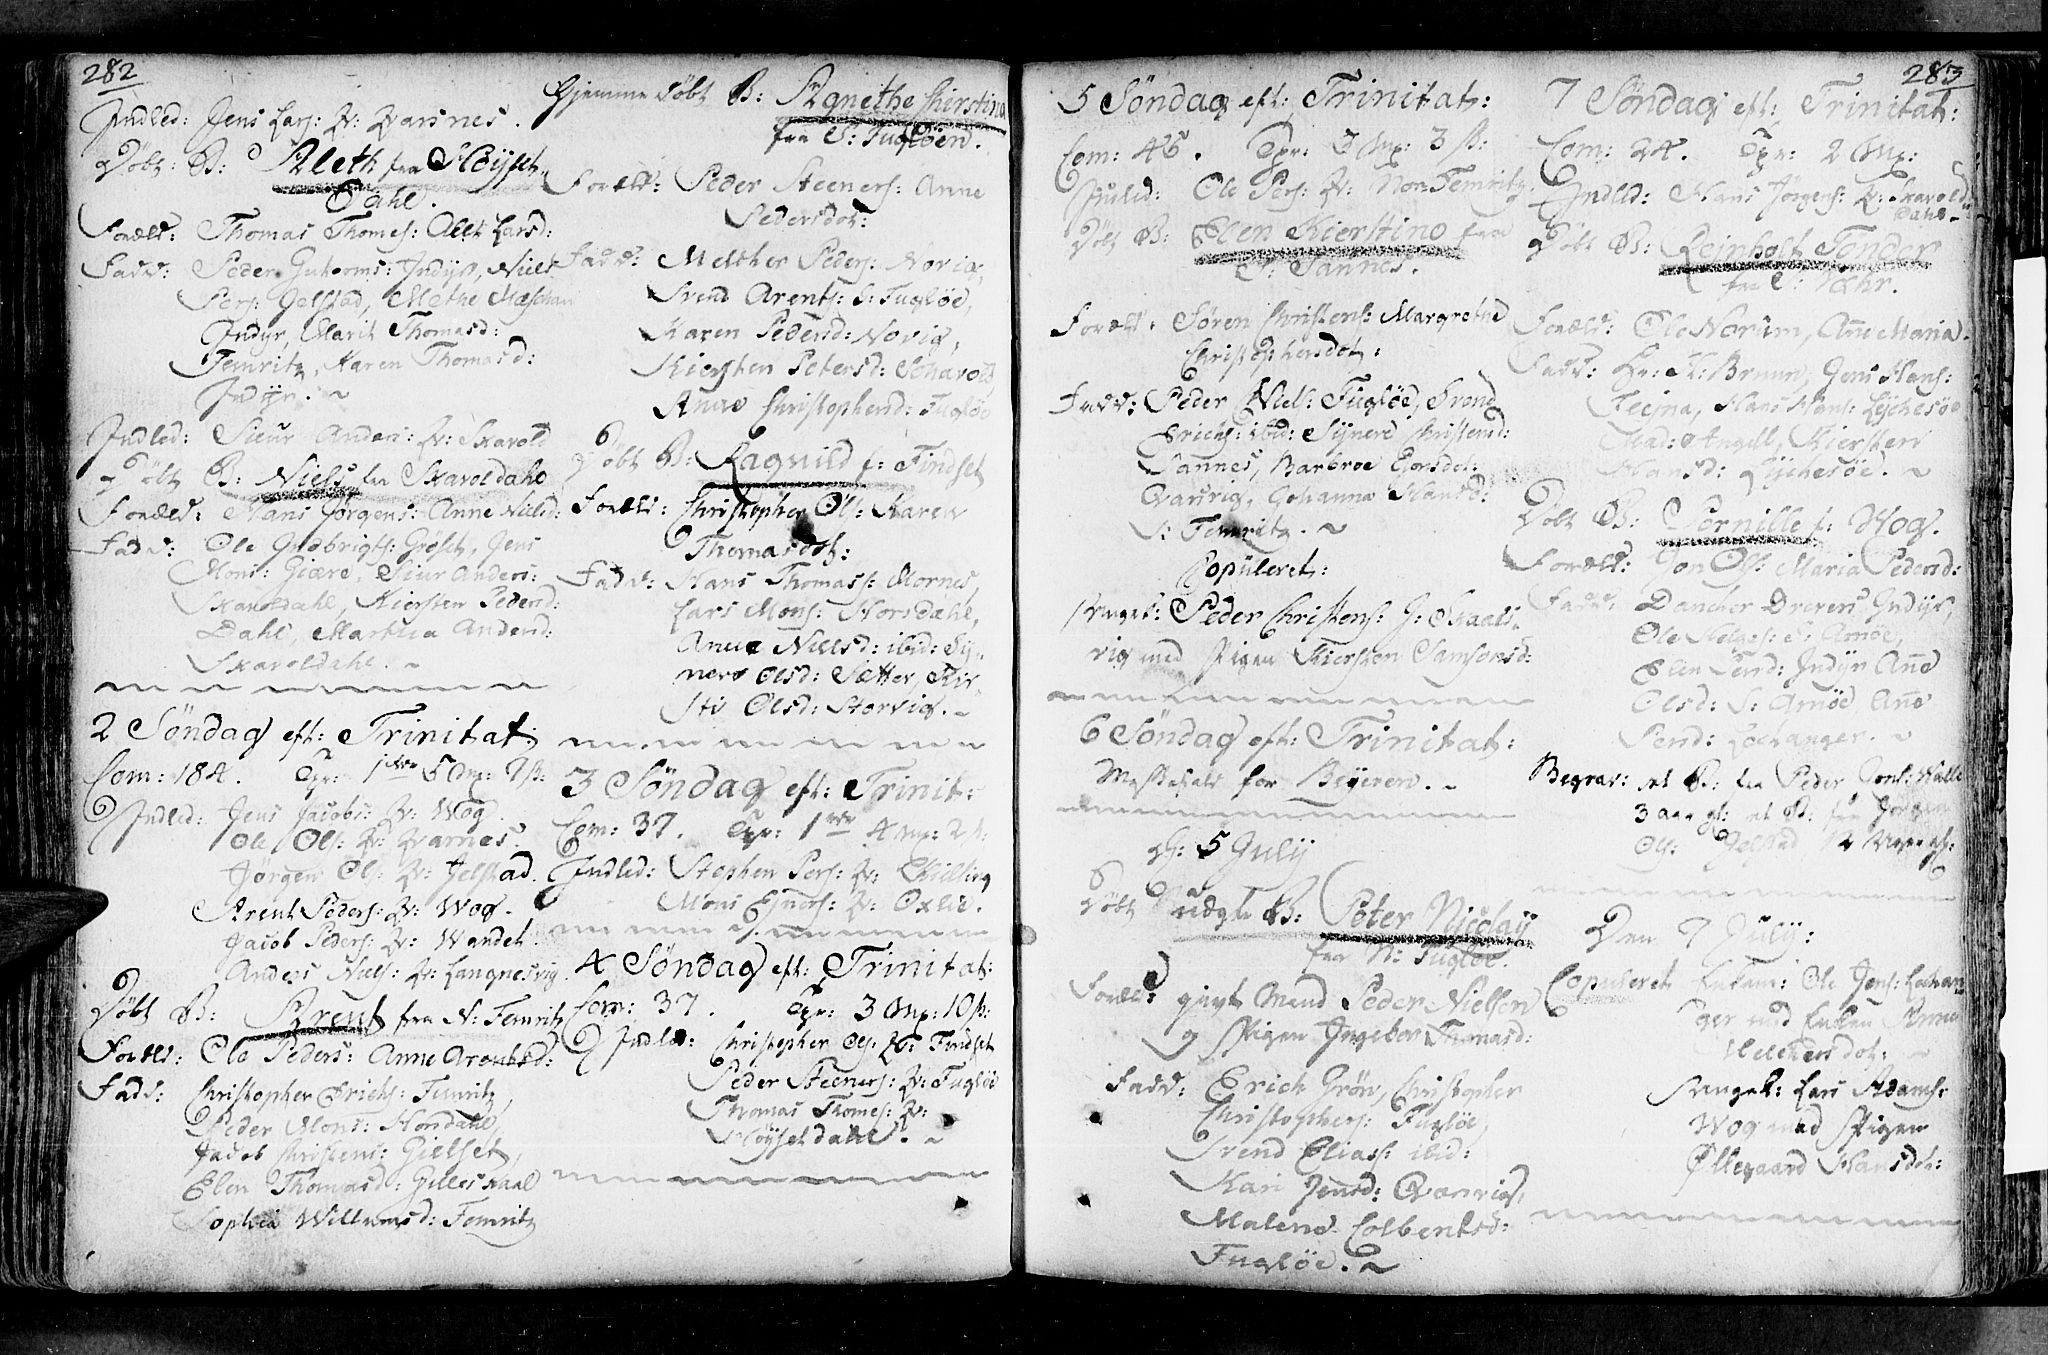 282
Indled: Jens Lars: Q: Qvarsnes.
Døbt: B: Aleth fra Støjset
Dahl.
Foræld: Thomas Thomes: Alet Larsd:
Fadd: Peder Guttorms: Indÿr, Niels
Pers: Jelstad, Methe
Indÿr, Marit Thomasd:
Femritz, Karen Thomasd:
Indÿr.
Indled: Siur Anders: Q: Skarold
Døbt B: Niels fra Skaroldahl
Foræld: Hans Jørgens: Anne Nielsd:
Fadd: Ole Gudbrigts: Groset, Jens
Mons: Giære, Siur Anders:
Skaroldahl, Kiersten Pedersd:
Dahl, Martha Andersd:
Skaroldahl.
2 Söndag eft: Trinitat:
Com: 184. Tpr: 1 5 Mx:
Indled: Jens Jacobs: Q: Wog
Ole Ols: Q: Qvarnes.
Jørgen Ols: Q: Jelstad.
Arent Peders: Q: Wog.
Jacob Peders: Q: Wandet.
Anders Niels: Q: Langnesvig
Døbt B: Arent fra N: Femritz
Foræld: Ole Peders: Anne Arentsd:
Fadd: Christopher Erichs: Femritz,
Peder Mons: Nordahl,
Jacob Christens: Gielset,
Elen Thomasd: Gilleskaal
Sophia Willumsd: Femritz
Hjemme døbt B: Agnethe Chierstina
fra S: Fugløen.
Foræld: Peder Steeners: Anne
Pedersdot:
Fadd: Melcher Peders: Norvig,
Svend Arents: S: Fugløe,
Karen Pedersd: Norvig,
Kiersten Petersd:
Anne Christophersd: Fugløe
Døbt B: Ragnild f: Findset
Foræld: Christopher Ols: Karen
Thomasdot:
Fadd: Hans Thomass: Mornes,
Lars Mons: Norsdahl,
Anne Nielsd: ibid: Sÿ-
nero Olsd: Sætter, Kir-
sti Olsd: Storvig.
3 Söndag eft: Trinit:
Com: 37. Tpr: 1 4 Mx: 2 ß:
Indled: Stephen Pers: Q:
Mons Ejners: Q:
4 Söndag eft: Trinitat:
Com: 37. Tpr: 3 Mx: 10 ß:
Indled: Christopher Ols: Q: Findset
Peder Steeners: Q: Fugløe
Thomas Thomes: Q:
Støjsetdahl.
283
5 Söndag eft: Trinitat:
Com: 46. Tpr: 3 Mx: 3 ß:
Indled: Ole Pers: Q: Nor Femritz
Døbt B: Elen Kierstino fra
S: Sannes.
Foræld: Søren Christens: Margrethe
Christophersdot:
Fadd: Peder Niels: Fugløe, Trond
Erichs: ibid: Sÿnero Christensd:
Sannes, Barbroe Ejorsdot:
Qvarsvig, Johanna Hansd:
S: Femritz.
Copuleret:
Peder Christens: G: Skaals-
vig med Pigen Kiersten Samsonsd:
6 Söndag eft: Trinitat:
Messefald for Bejeren.
D: 5 Julÿ
Døbt uægte B: Peter Nicolaÿ
fra N: Fugløe.
Foræld: givt Mand Peder Nielsen
og Pigen Ingebor Thomasd:
Fadd: Erich Grön, Christopher
Christophers: Fugløe,
Svend Elias: ibid:
Kari Jensd: Qvarsvig,
Malene Colbentsd:
Fugløe.
7 Söndag eft: Trinitat:
Com: 24. Tpr: 2 Mx:
Indled: Hans Jörgens: Q: Skarold
Dahl.
Døbt B: Reinholt Tönder
fra
Foræld: Ole Norum, Anne Maria.
Fadd: Hr: H: Bruun, Jens Hans:
Hans Hans: Lÿchesöe
Mad: Angell, Kiersten
Hansd: Lÿchesöe.
Døbt B: Pernille f: Wog.
Foræld: Jon Ols: Maria Pedersd:
Fadd: Dancher Drejers Indÿr,
Ole S: Arnöe,
Elen Indÿr Anne
Olsd: S: Arnöe Anne
Persd: Lochanger.
Begrav: et B: fra Peder Jons:
3 aar gl: et B: fra Jørgen
Ols: Jelstad 12
Den 7 Julÿ:
Copuleret Enkem: Ole Jens: Lochan-
ger med Enken Anne
Melchersdot:
Lars Adams:
Wog med Pigen
Øllegaard Hansdot: